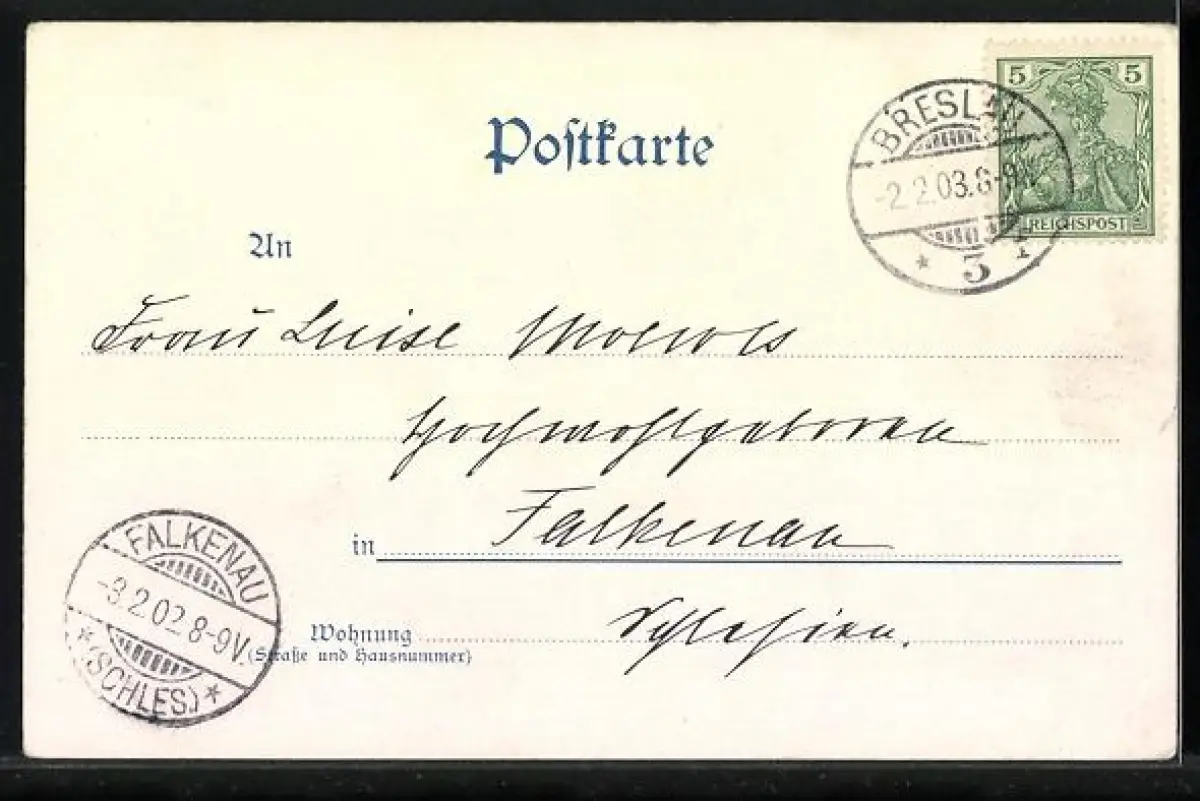 5 5
REICHSPOST
BRESLAU
-2.2.03.8-9V.
* 3 *
Postkarte
An
Frau Luise
Hochwohlgeboren
in Falkenau
Wohnung Schlesien.
(Straße und Hausnummer)
FALKENAU
-3.2.02 8-9V.
* (SCHLES.) *